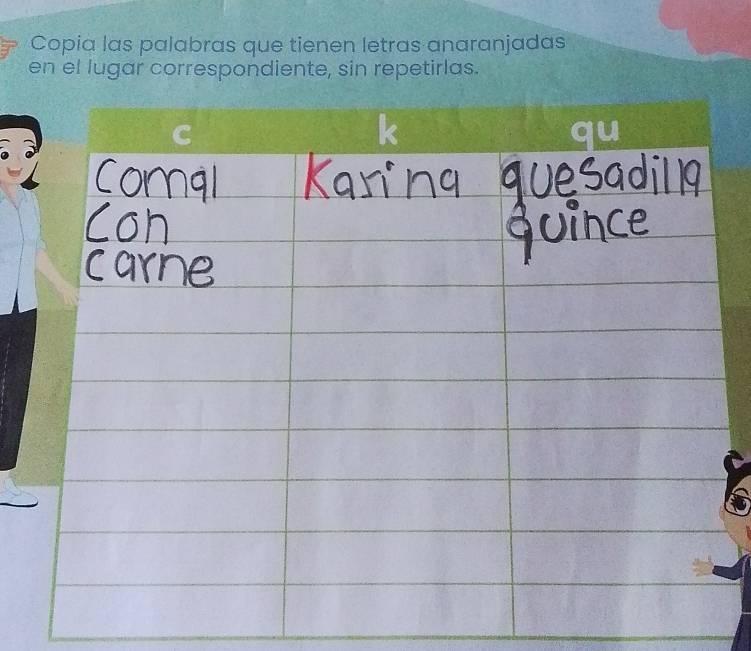 Copia las palabras que tienen letras anaranjadas
en el lugar correspondiente, sin repetirlas.
c k qu
comal Karina quesadilla
con quince
carne